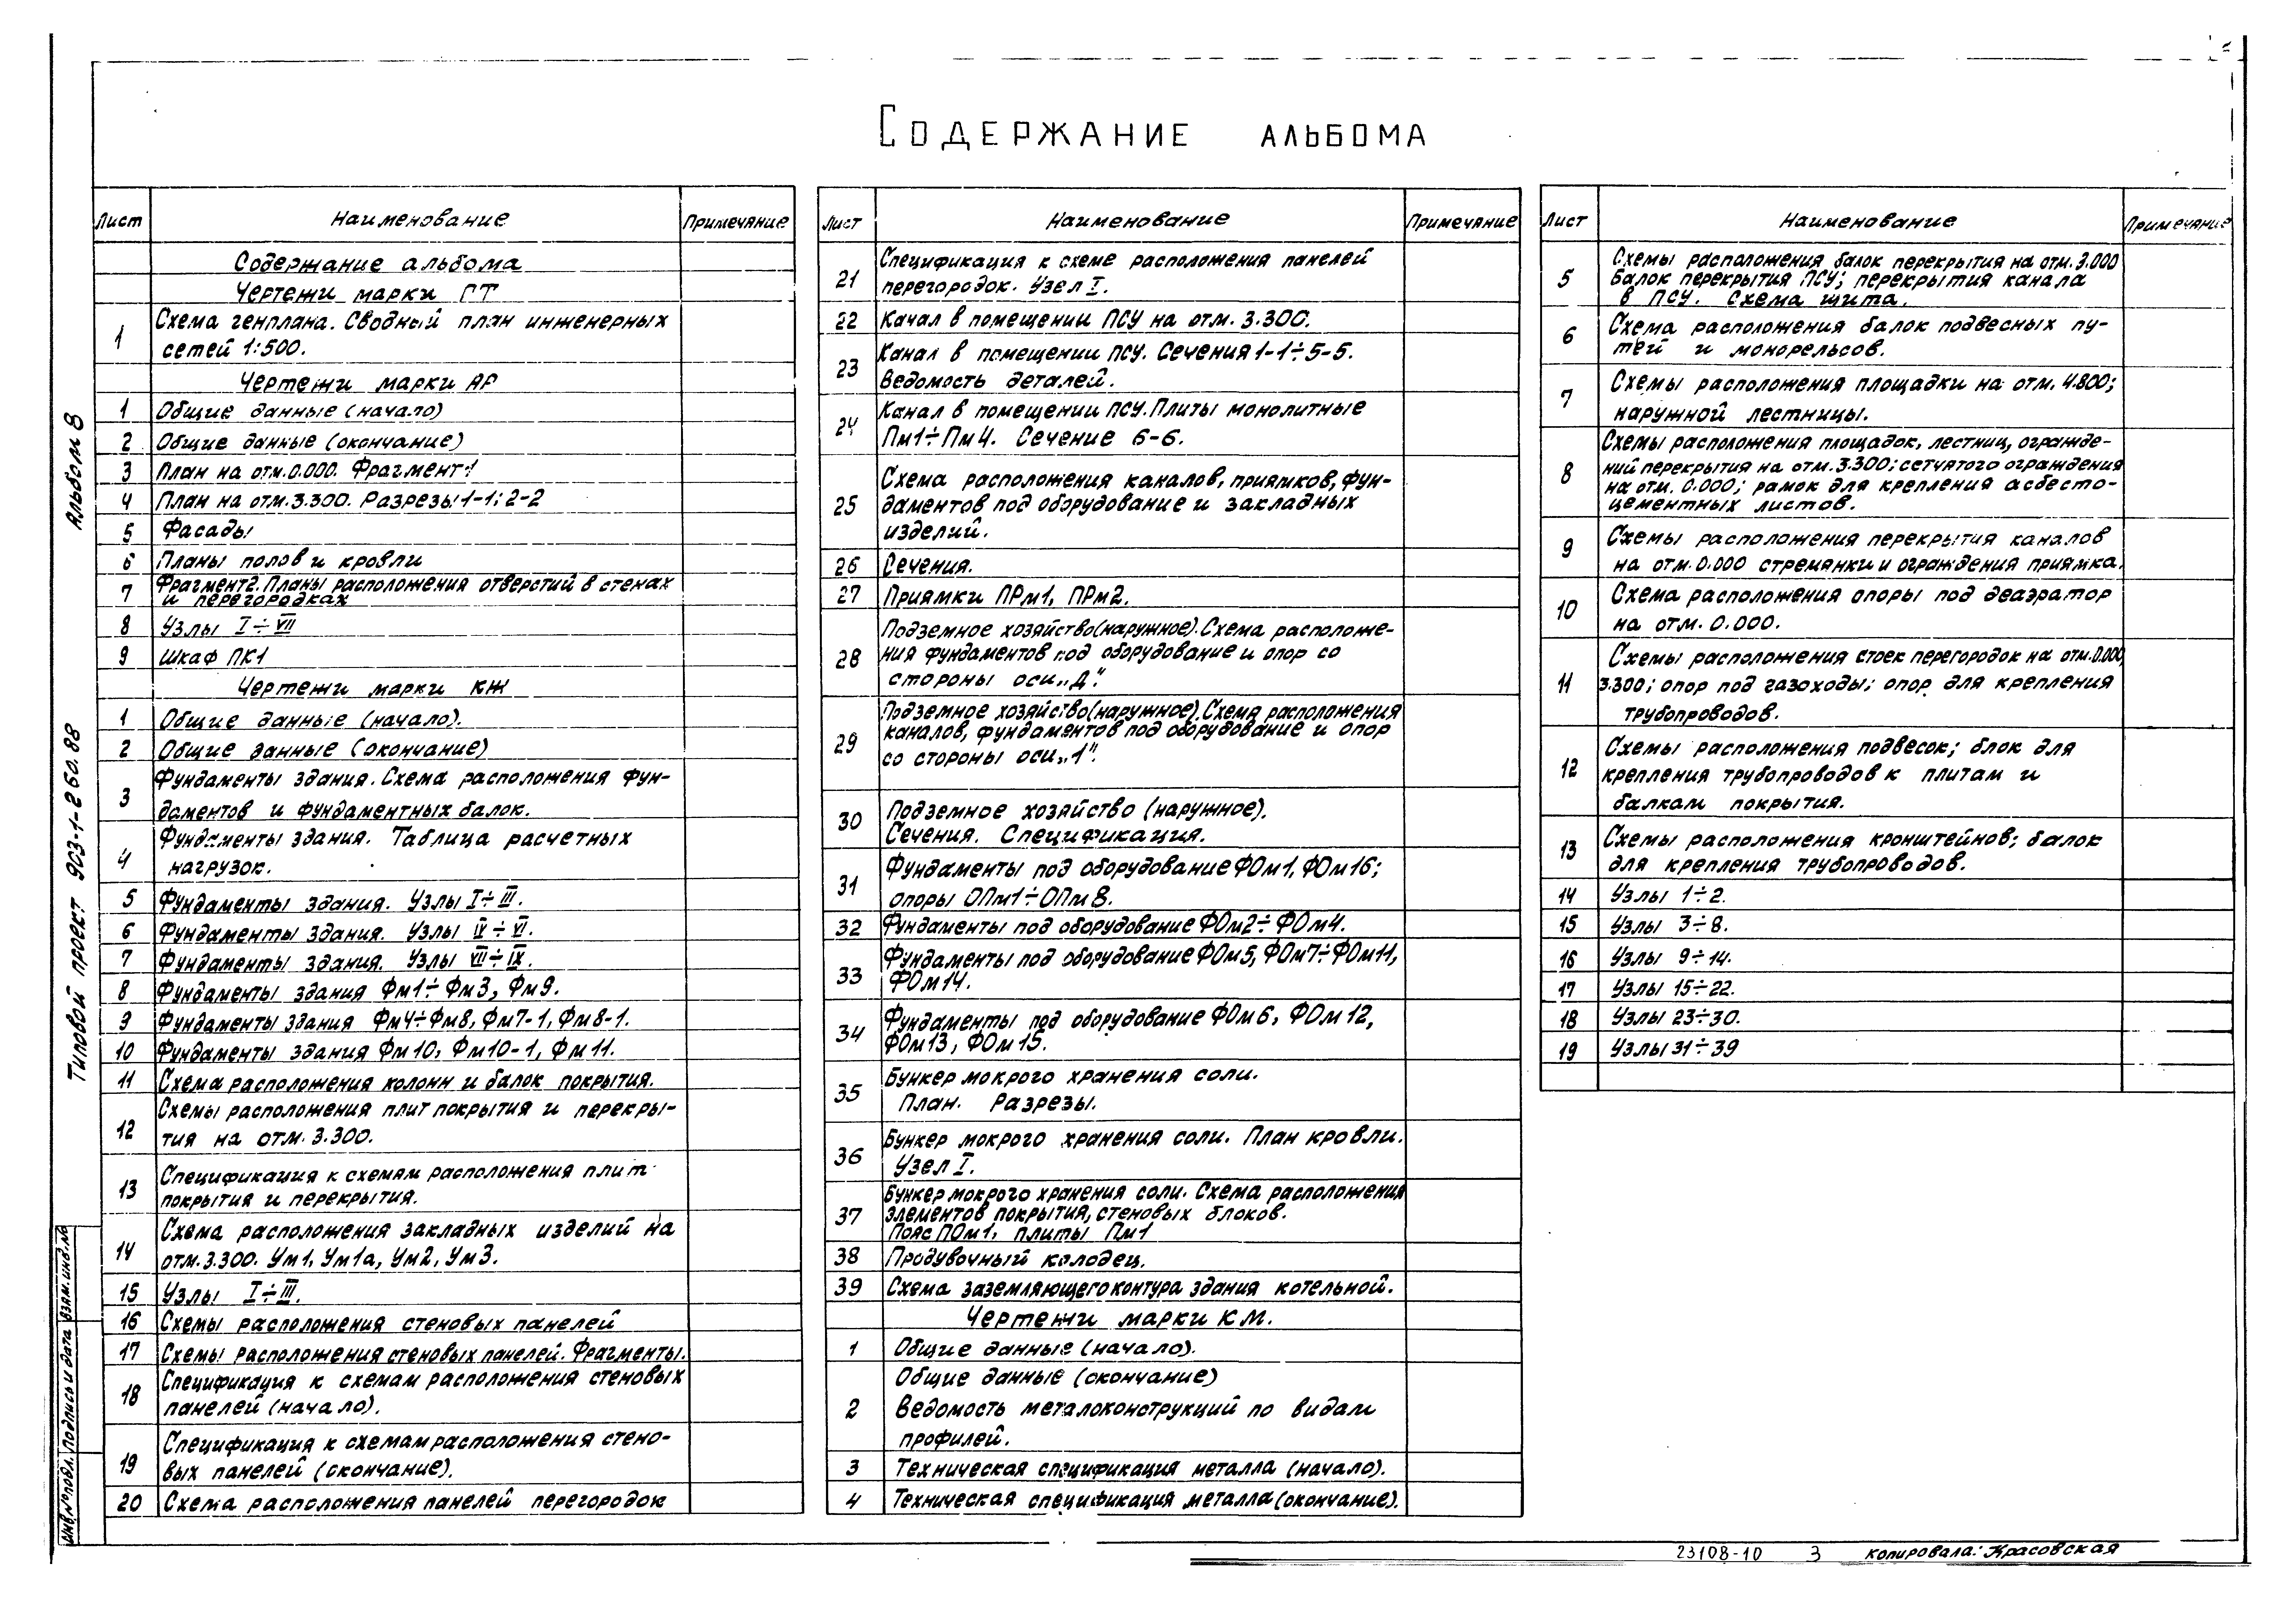 Содержание альбома
Лист Наименование Примечание
Содержание альбома
Чертежи марки ГТ
1 Схема генплана. Сводный план инженерных
сетей 1:500.
Чертежи марки АР
1 Общие данные (начало)
2 Общие данные (окончание)
3 План на отм. 0.000. Фрагмент 1
4 План на отм. 3.300. Разрезы 1-1; 2-2
5 Фасады
6 Планы полов и кровли
7 Фрагмент 2. Планы расположения отверстий в стенах
и перегородках
8 Узлы I÷VII
9 Шкаф ПК1
Чертежи марки КЖ
1 Общие данные (начало).
2 Общие данные (окончание)
3 Фундаменты здания. Схема расположения фун-
даментов и фундаментных балок.
4 Фундаменты здания. Таблица расчетных
нагрузок.
5 Фундаменты здания. Узлы I÷III.
6 Фундаменты здания. Узлы IV÷VI.
7 Фундаменты здания. Узлы VII÷IX.
8 Фундаменты здания Фм1÷Фм3, Фм9.
9 Фундаменты здания Фм4÷Фм8, Фм7-1, Фм8-1.
10 Фундаменты здания Фм10, Фм10-1, Фм11.
11 Схема расположения колонн и балок покрытия.
12 Схемы расположения плит покрытия и перекры-
тия на отм. 3.300.
13 Спецификация к схемам расположения плит
покрытия и перекрытия.
14 Схема расположения закладных изделий на
отм. 3.300. Ум1, Ум1а, Ум2, Ум3.
15 Узлы I÷III.
16 Схемы расположения стеновых панелей
17 Схемы расположения стеновых панелей. Фрагменты.
18 Спецификация к схемам расположения стеновых
панелей (начало).
19 Спецификация к схемам расположения стено-
вых панелей (окончание).
20 Схема расположения панелей перегородок
Лист Наименование Примечание
21 Спецификация к схеме расположения панелей
перегородок. Узел I.
22 Канал в помещении ПСУ на отм. 3.300.
23 Канал в помещении ПСУ. Сечения 1-1÷5-5.
Ведомость деталей.
24 Канал в помещении ПСУ. Плиты монолитные
Пм1÷Пм4. Сечение 6-6.
25 Схема расположения каналов, приямков, фун-
даментов под оборудование и закладных
изделий.
26 Сечения.
27 Приямки ПРм1, ПРм2.
28 Подземное хозяйство (наружное). Схема расположе-
ния фундаментов под оборудование и опор со
стороны оси „Д“.
29 Подземное хозяйство (наружное). Схема расположения
каналов, фундаментов под оборудование и опор
со стороны оси „1“.
30 Подземное хозяйство (наружное).
Сечения. Спецификация.
31 Фундаменты под оборудование ФОм1, ФОм16;
опоры ОПм1÷ОПм8.
32 Фундаменты под оборудование ФОм2÷ФОм4.
33 Фундаменты под оборудование ФОм5, ФОм7÷ФОм11,
ФОм14.
34 Фундаменты под оборудование ФОм6, ФОм12,
ФОм13, ФОм15.
35 Бункер мокрого хранения соли.
План. Разрезы.
36 Бункер мокрого хранения соли. План кровли.
Узел I.
37 Бункер мокрого хранения соли. Схема расположения
элементов покрытия, стеновых блоков.
Пояс ПОм1, плиты Пм1
38 Продувочный колодец.
39 Схема заземляющего контура здания котельной.
Чертежи марки КМ.
1 Общие данные (начало).
Общие данные (окончание)
2 Ведомость металоконструкций по видам
профилей.
3 Техническая спецификация металла (начало).
4 Техническая спецификация металла (окончание).
Лист Наименование Примечание
5 Схемы расположения балок перекрытия на отм. 3.000
балок перекрытия ПСУ; перекрытия канала
в ПСУ. Схема щита.
6 Схема расположения балок подвесных пу-
тей и монорельсов.
7 Схемы расположения площадки на отм. 4.800;
наружной лестницы.
8 Схемы расположения площадок, лестниц, огражде-
ний перекрытия на отм. 3.300; сетчатого ограждения
на отм. 0.000; рамок для крепления асбесто-
цементных листов.
9 Схемы расположения перекрытия каналов
на отм. 0.000 стремянки и ограждения приямка.
10 Схема расположения опоры под деаэратор
на отм. 0.000.
11 Схемы расположения стоек перегородок на отм. 0.000,
3.300; опор под газоходы; опор для крепления
трубопроводов.
12 Схемы расположения подвесок; блок для
крепления трубопроводов к плитам и
балкам покрытия.
13 Схемы расположения кронштейнов; балок
для крепления трубопроводов.
14 Узлы 1÷2.
15 Узлы 3÷8.
16 Узлы 9÷14.
17 Узлы 15÷22.
18 Узлы 23÷30.
19 Узлы 31÷39
Альбом 8
Типовой проект 903-1-260.88
Инв. № подл. Подпись и дата Взам. инв. №
23108-10 3 Копировала: Красовская